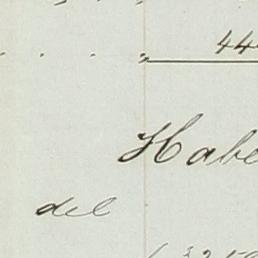 44
Habe
del